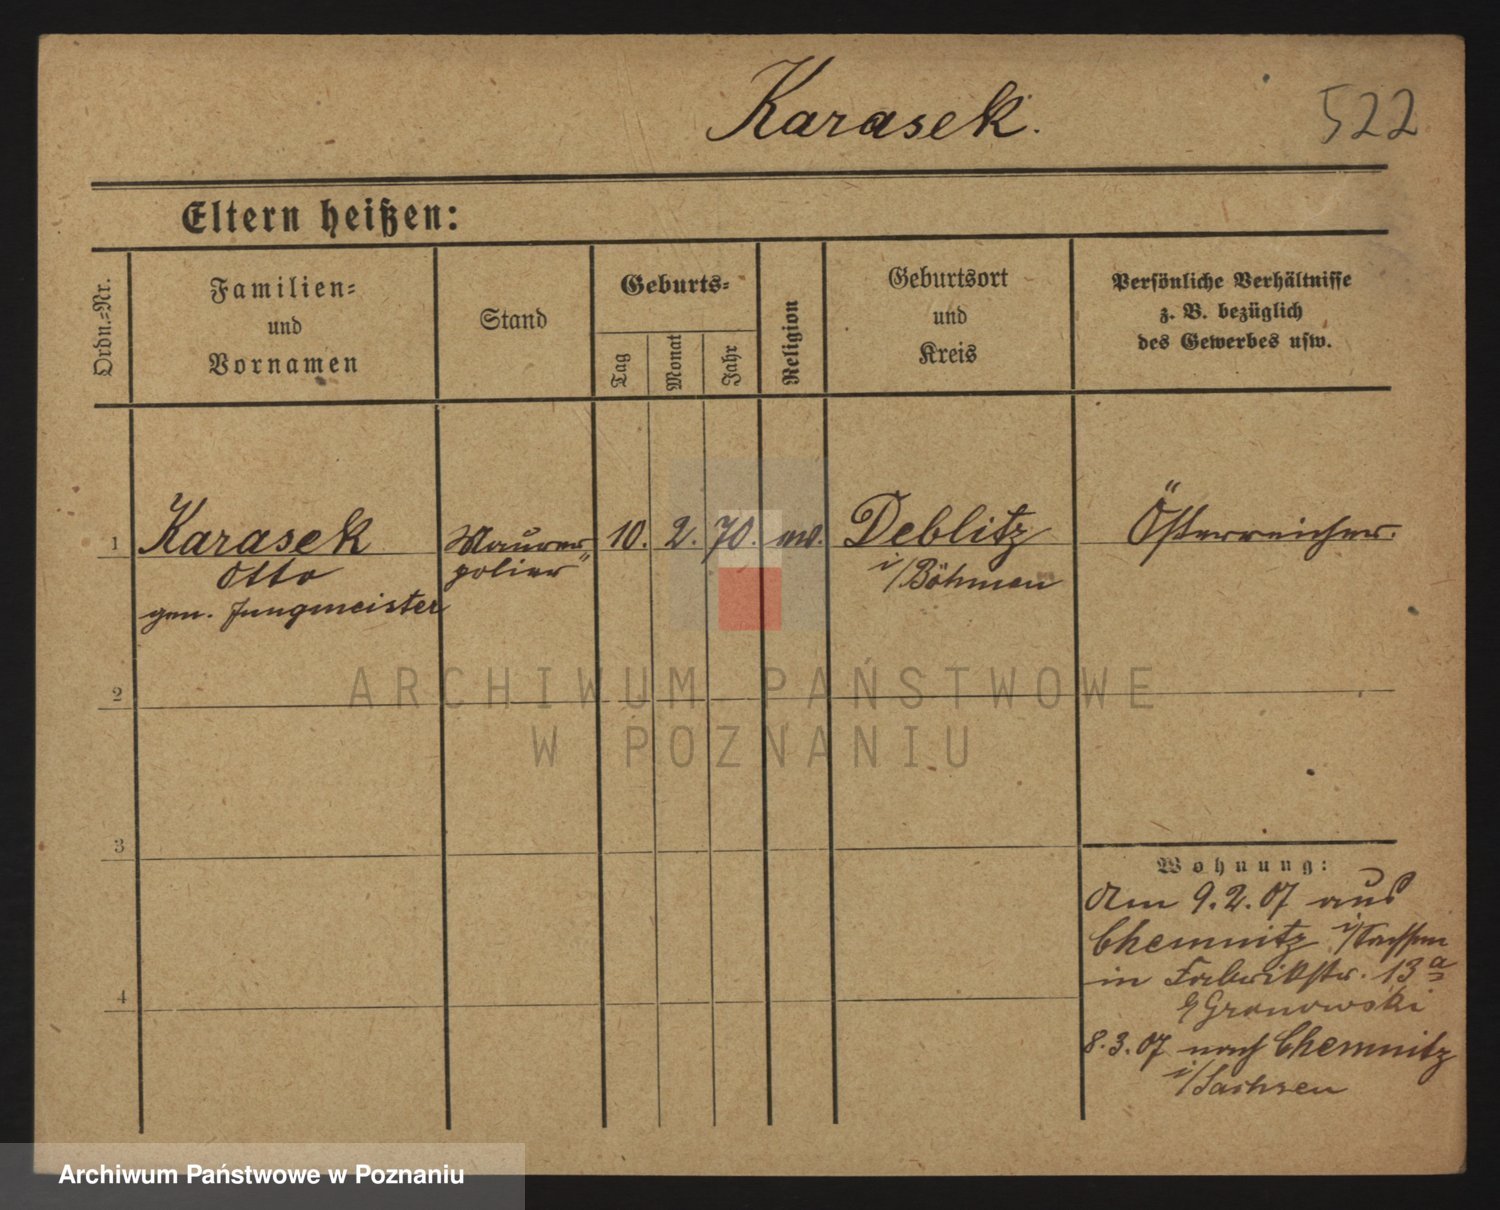 Karasek.
522
Eltern heißen:
Ordn.-Nr.
Familien-
und
Vornamen
Stand
Geburts-
Tag
Monat
Jahr
Religion
Geburtsort
und
Kreis
Persönliche Verhältnisse
z. B. bezüglich
des Gewerbes usw.
1
Karasek
Otto
gen. Jungmeister
Maurer
polier
10. 2. 70.
Deblitz
i/Böhmen
Österreicher.
ARCHIWUM PAŃSTWOWE
W POZNANIU
2
3
4
Wohnung:
Am 9.2.07 aus
Chemnitz i/Sachsen
in Fabrikstr. 13a
Gronowski
8.3.07 nach Chemnitz
i/Sachsen
Archiwum Państwowe w Poznaniu